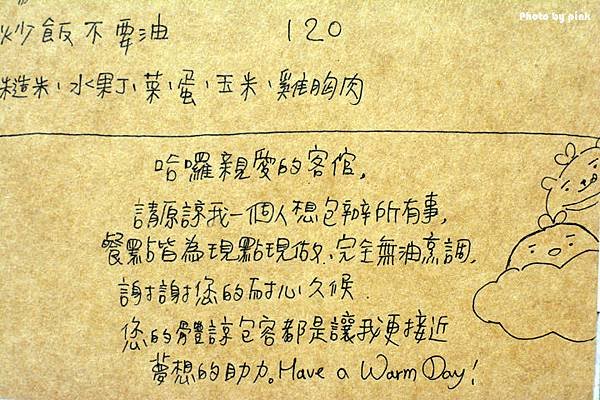 Photo by pink
炒飯不要油 120
糙米、水果丁、菜、蛋、玉米、雞胸肉
哈囉親愛的客倌,
請原諒我一個人想包辦所有事,
餐點皆為現點現做、完全無油烹調,
謝謝您的耐心久候.
您的體諒包容都是讓我更接近
夢想的助力。Have a Warm Day!